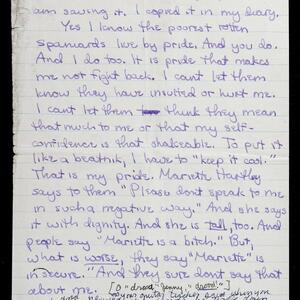 am saving it. I copied it in my diary.
Yes I know the poorest rotten
Spaniards live by pride. And you do.
And I do too. It is pride that makes
me not fight back. I cant let them
know they have insulted or hurt me.
I cant let them think they mean
that much to me or that my self-
confidence is that shakeable. To put it
like a beatnik, I have to "keep it cool."
That is my pride. Mariette Hartley
says to them "Please don't speak to me
in such a negative way." And she says
it with dignity. And she is tall, too. And
people say "Mariette is a bitch." But,
what is worse, they say "Mariette is
insecure." And they sure dont say that
about me.